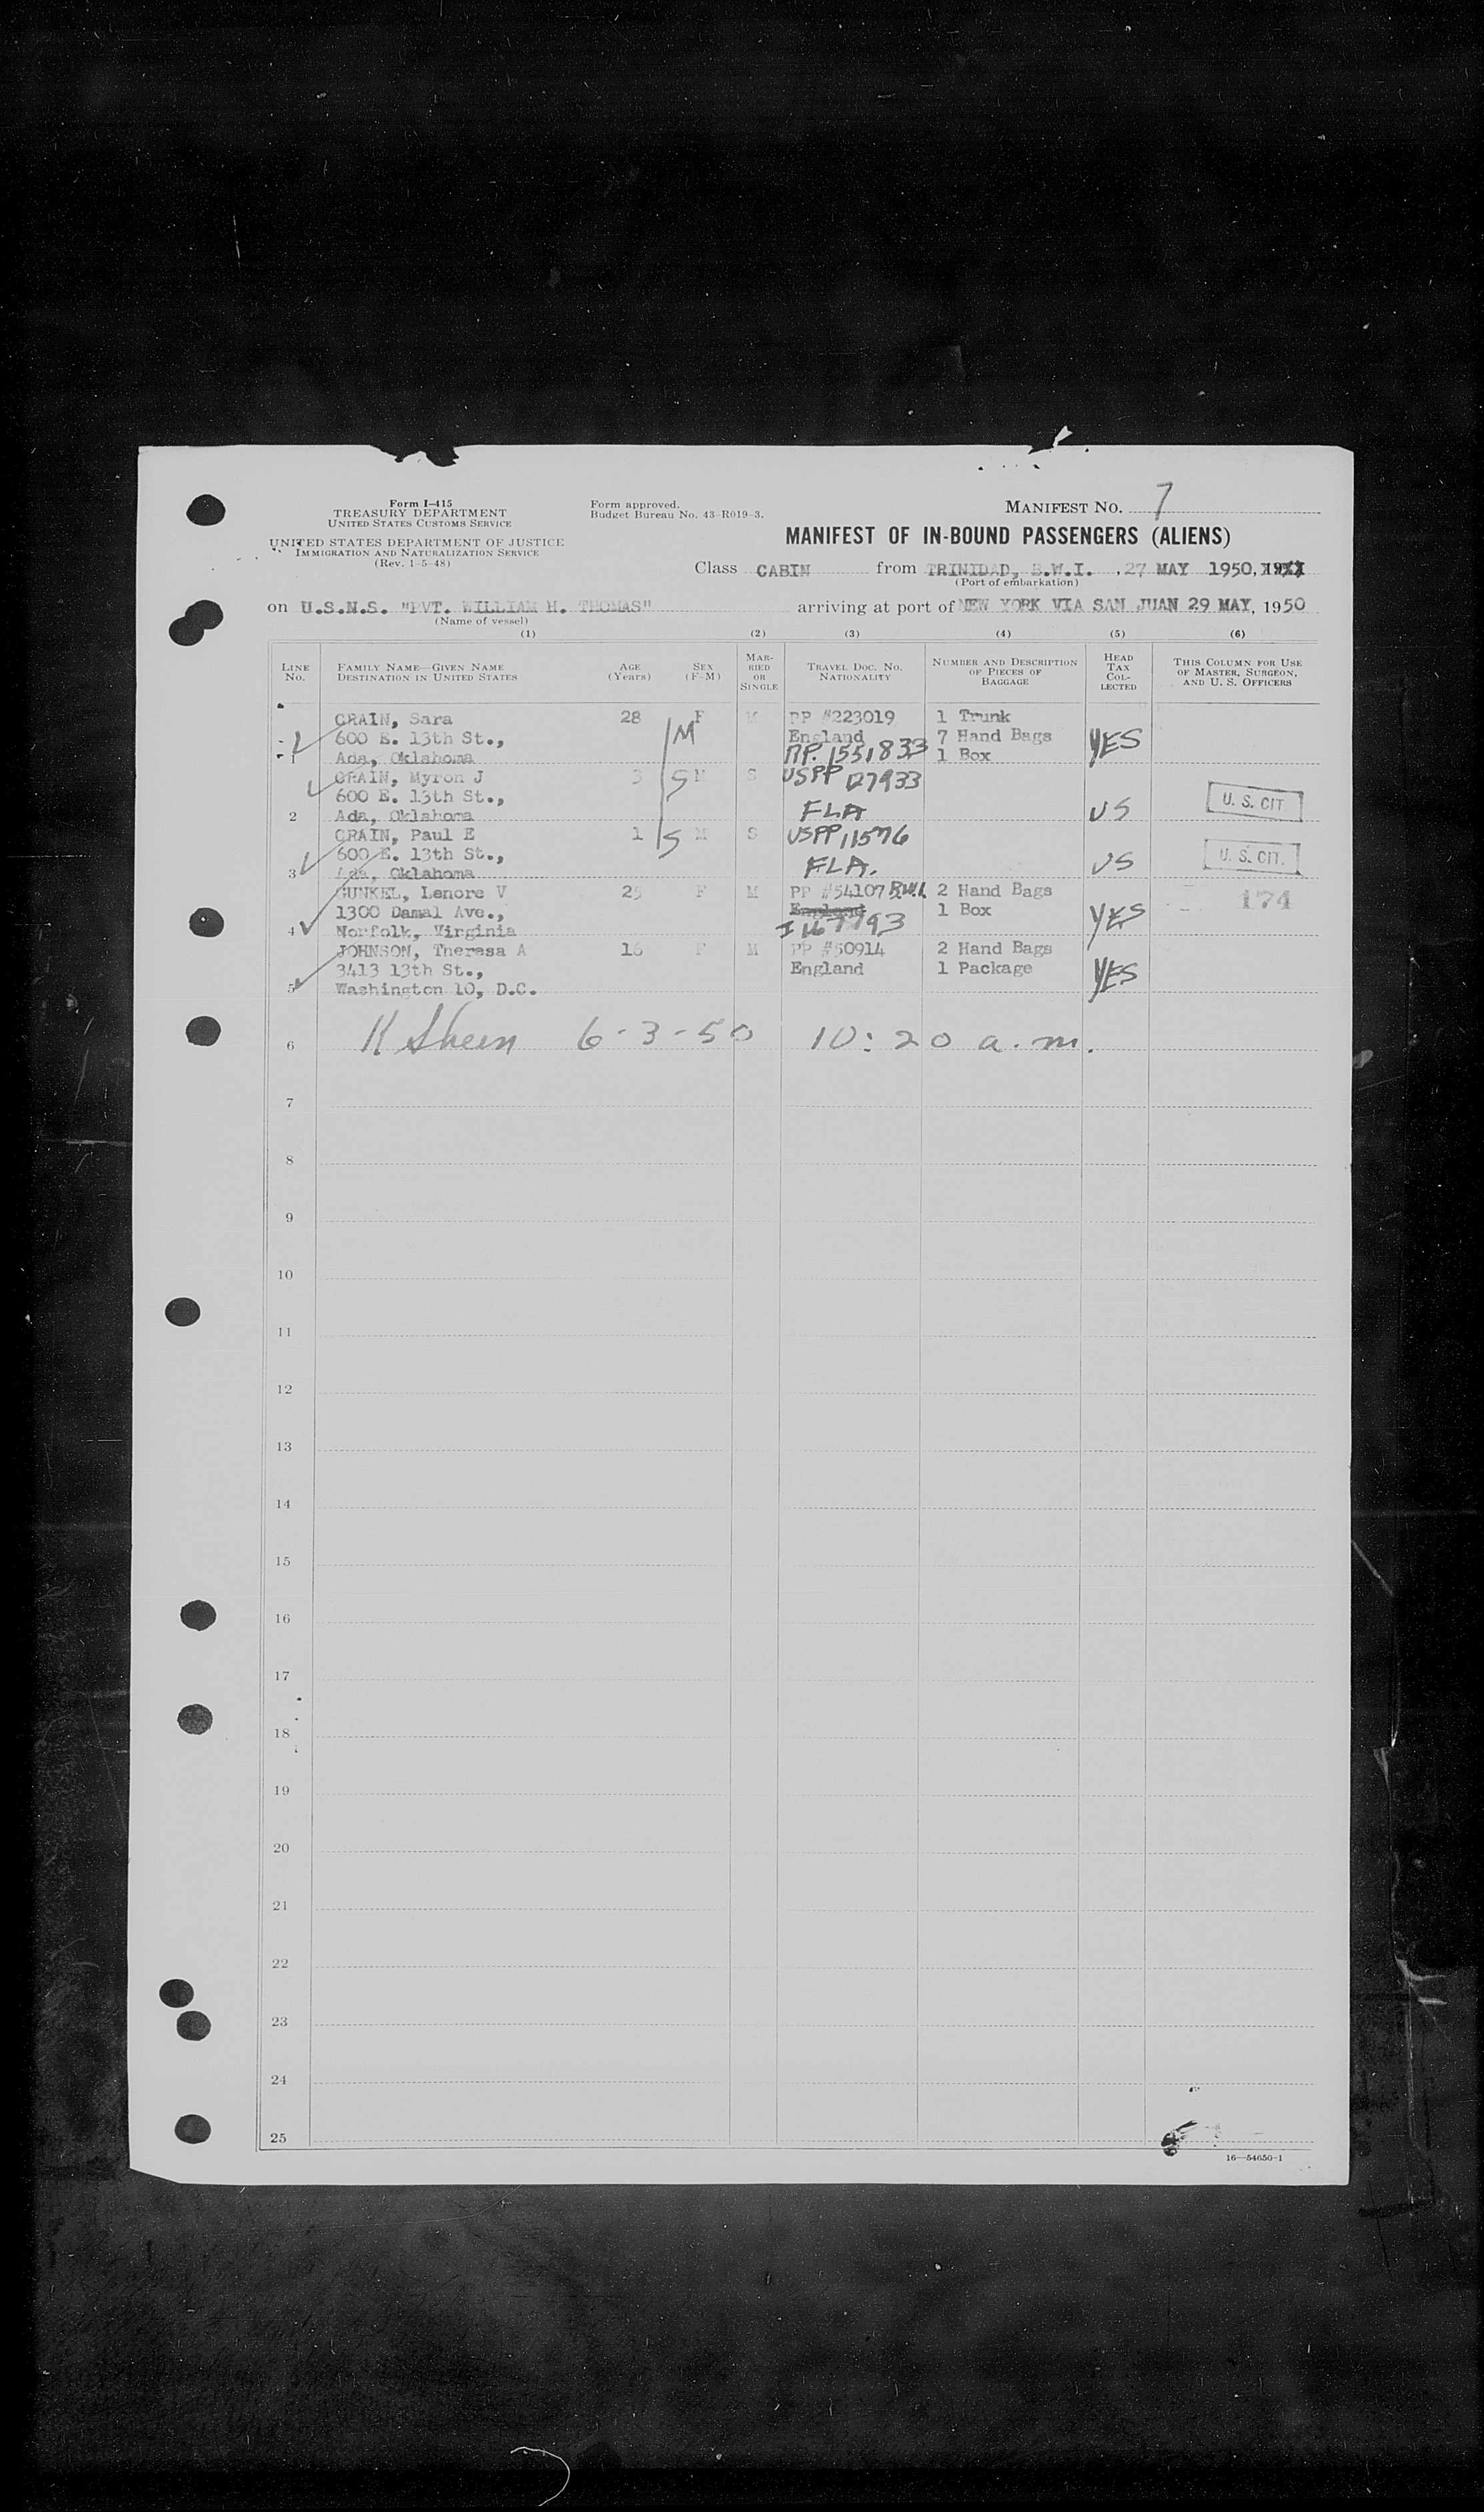 Form I-415
TREASURY DEPARTMENT
UNITED STATES CUSTOMS SERVICE
UNITED STATES DEPARTMENT OF JUSTICE
IMMIGRATION AND NATURALIZATION SERVICE
(Rev. 1-5-48)
Form approved.
Budget Bureau No. 43-R019-3.
MANIFEST NO. 7
MANIFEST OF IN-BOUND PASSENGERS (ALIENS)
Class CABIN from TRINIDAD, B.W.I. , 27 MAY 1950,
(Port of embarkation)
on U.S.N.S. "PVT. WILLIAM H. THOMAS" arriving at port of NEW YORK VIA SAN JUAN 29 MAY, 1950
(Name of vessel)
(1) (2) (3) (4) (5) (6)
LINE No. FAMILY NAME—GIVEN NAME DESTINATION IN UNITED STATES AGE (Years) SEX (F-M) MARRIED OR SINGLE TRAVEL DOC. NO. NATIONALITY NUMBER AND DESCRIPTION OF PIECES OF BAGGAGE HEAD TAX COLLECTED THIS COLUMN FOR USE OF MASTER, SURGEON, AND U. S. OFFICERS
CRAIN, Sara 28 F M PP #223019 1 Trunk
600 E. 13th St., M England 7 Hand Bags YES
1 Ada, Oklahoma 1551833 1 Box
CRAIN, Myron J 3 S M S USPP 127933
600 E. 13th St., U. S. CIT
2 Ada, Oklahoma FLA US
CRAIN, Paul E 1 S M S USPP 11576
600 E. 13th St., U. S. CIT.
3 Ada, Oklahoma FLA. US
GUNKEL, Lenore V 25 F M PP #54107 B.W.I. 2 Hand Bags 174
1300 Damal Ave., England 1 Box YES
4 Norfolk, Virginia
JOHNSON, Theresa A 16 F M PP #50914 2 Hand Bags
3413 13th St., England 1 Package YES
5 Washington 10, D.C.
6 K Sheen 6-3-50 10:20 a.m.
7
8
9
10
11
12
13
14
15
16
17
18
19
20
21
22
23
24
25
16—54650-1